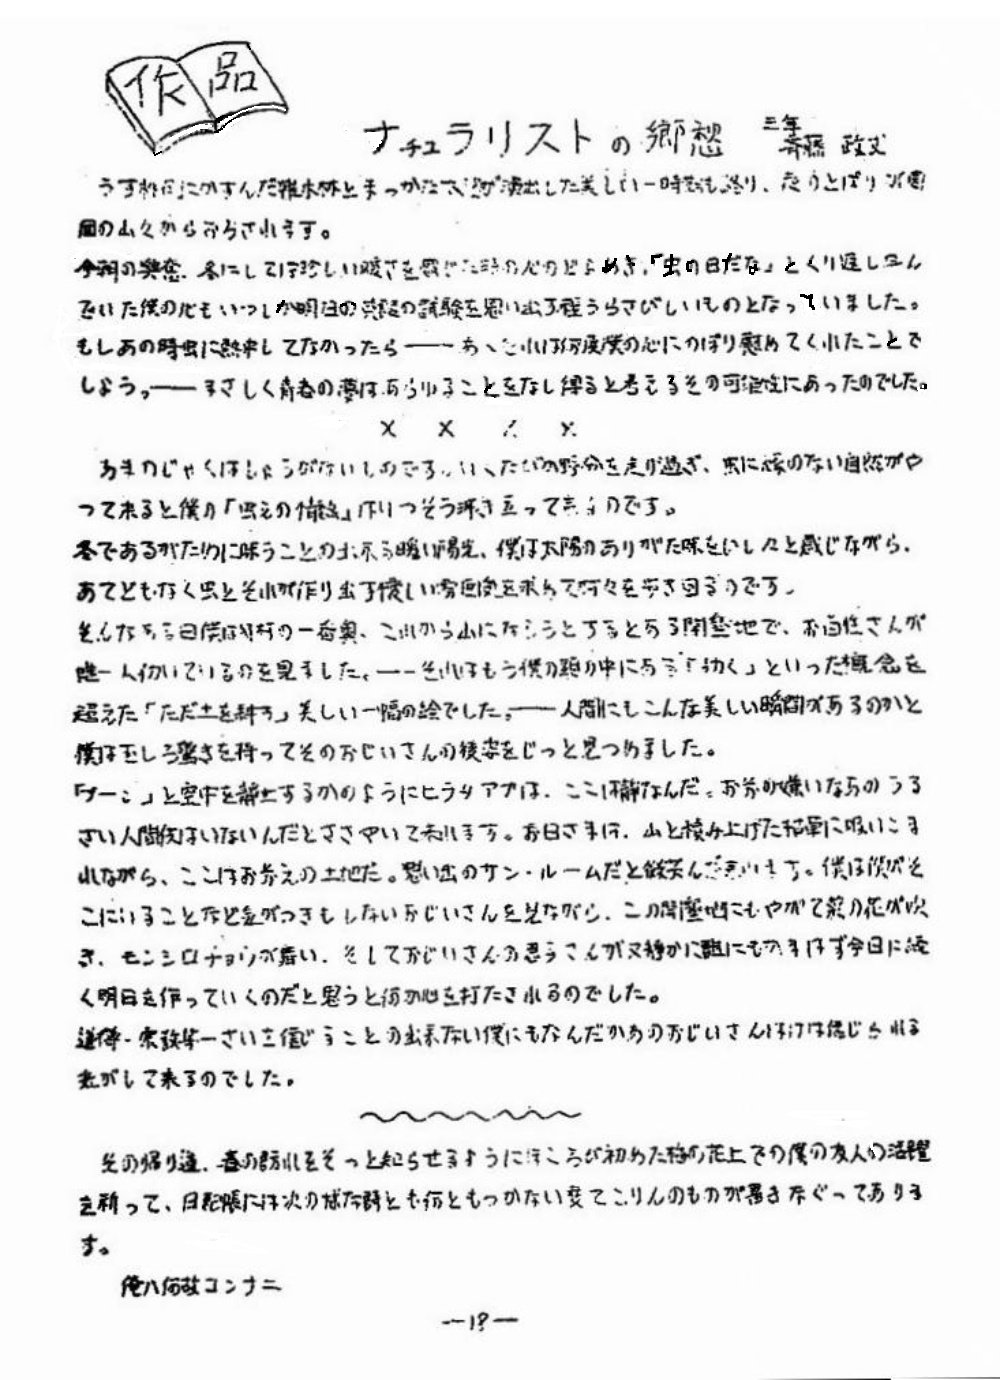 作品
ナチュラリストの郷愁
三年 斉藤 政文
うす にかすんだ雑木林とまっかな太陽が演出した美しい一時も終り、夜のとばりが周
囲の山々からおろされます。
今朝の興奮、冬にしては珍しい暖さを感じた時の心のどよめき、「虫の日だな」とくり返し
でいた僕の心もいつしか明日の英語の試験を思い出す程うらさびしいものとなっていました。
もしあの時虫に熱中してなかったら――あゝそれは何度僕の心にのぼり慰めてくれたことで
しょう。――まさしく青春の夢はあらゆることをなし得ると考えるその可能性にあったのでした。
× × × ×
あまのじゃくはしょうがないものです。いくたびか野分を走り過ぎ、虫に縁のない自然がや
って来ると僕の「虫えの情熱」はりつそう沸き立って来るのです。
冬であるがために味うことの出来る暖い陽光、僕は太陽のありがた味をひしひしと感じながら、
あてどもなく虫とそれが作り出す優しい雰囲気を求めて村々を歩き回るのです。
そんなある日僕は 村の一番奥、これから山になろうとするとある開墾地で、お百姓さんが
唯一人仂いているのを見ました。――それはもう僕の頭の中にある「仂く」といった概念を
超えた「ただ土を耕す」美しい一幅の絵でした。――人間にもこんな美しい瞬間があるのかと
僕はむしろ驚きを持ってそのおじいさんの後姿をじっと見つめました。
「ブーン」と空中を静止するかのようにヒラタアブは、ここは静なんだ。お前の嫌いなあのうる
さい人間共はいないんだとささやいて来れます。お日さまは、山と積み上げた枯草に吸いこま
れながら、ここはお前えの土地だ。思い出のサン・ルームだと微笑んで来れます。僕は僕がそ
こにいることなど気がつきもしないおじいさんを見ながら、この開墾地にもやがて菜の花が咲
き、モンシロチョウが舞い、そしておじいさんの思うさんが又静かに誰にもかまはず今日に続
く明日を作っていくのだと思うと何か心を打たされるのでした。
道徳・宗教 一さいを信じることの出来ない僕にもなんだかあのおじいさんだけは信じられる
気がして来るのでした。
その帰り道、春の訪れをそっと知らせるようにほころび初めた梅の花上での僕の友人の活躍
を祈って、日記帳には次の様な詩とも何ともつかない変てこりんのものが書きなぐってありま
す。
俺ハ何故コンナニ